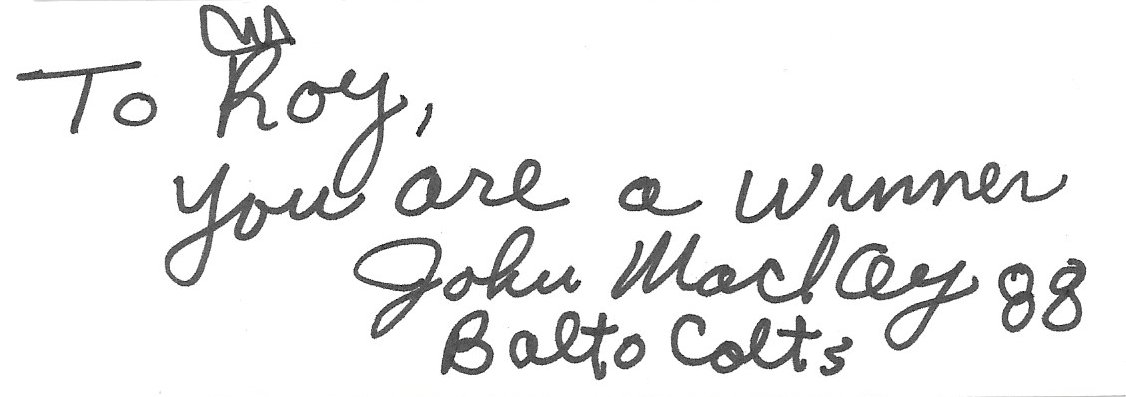 To Roy,
You are a winner
John Mackey 88
Balto Colts